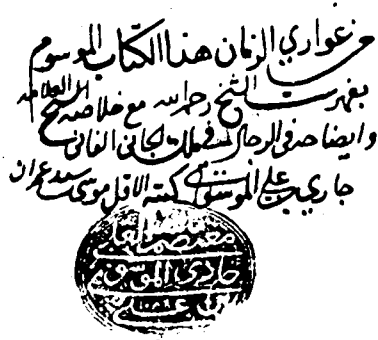 من عواري الزمان هذا الكتاب الموسوم
بفهرست الشيخ رحمه الله مع خلاصة الشيخ العلامة
وايضاحه في الرجال في ملك الجاني الفاني
جاري بن علي الموسوي كتبه الاقل موسى سيد عمران
معتصما بالله
الموسوي
بن علي